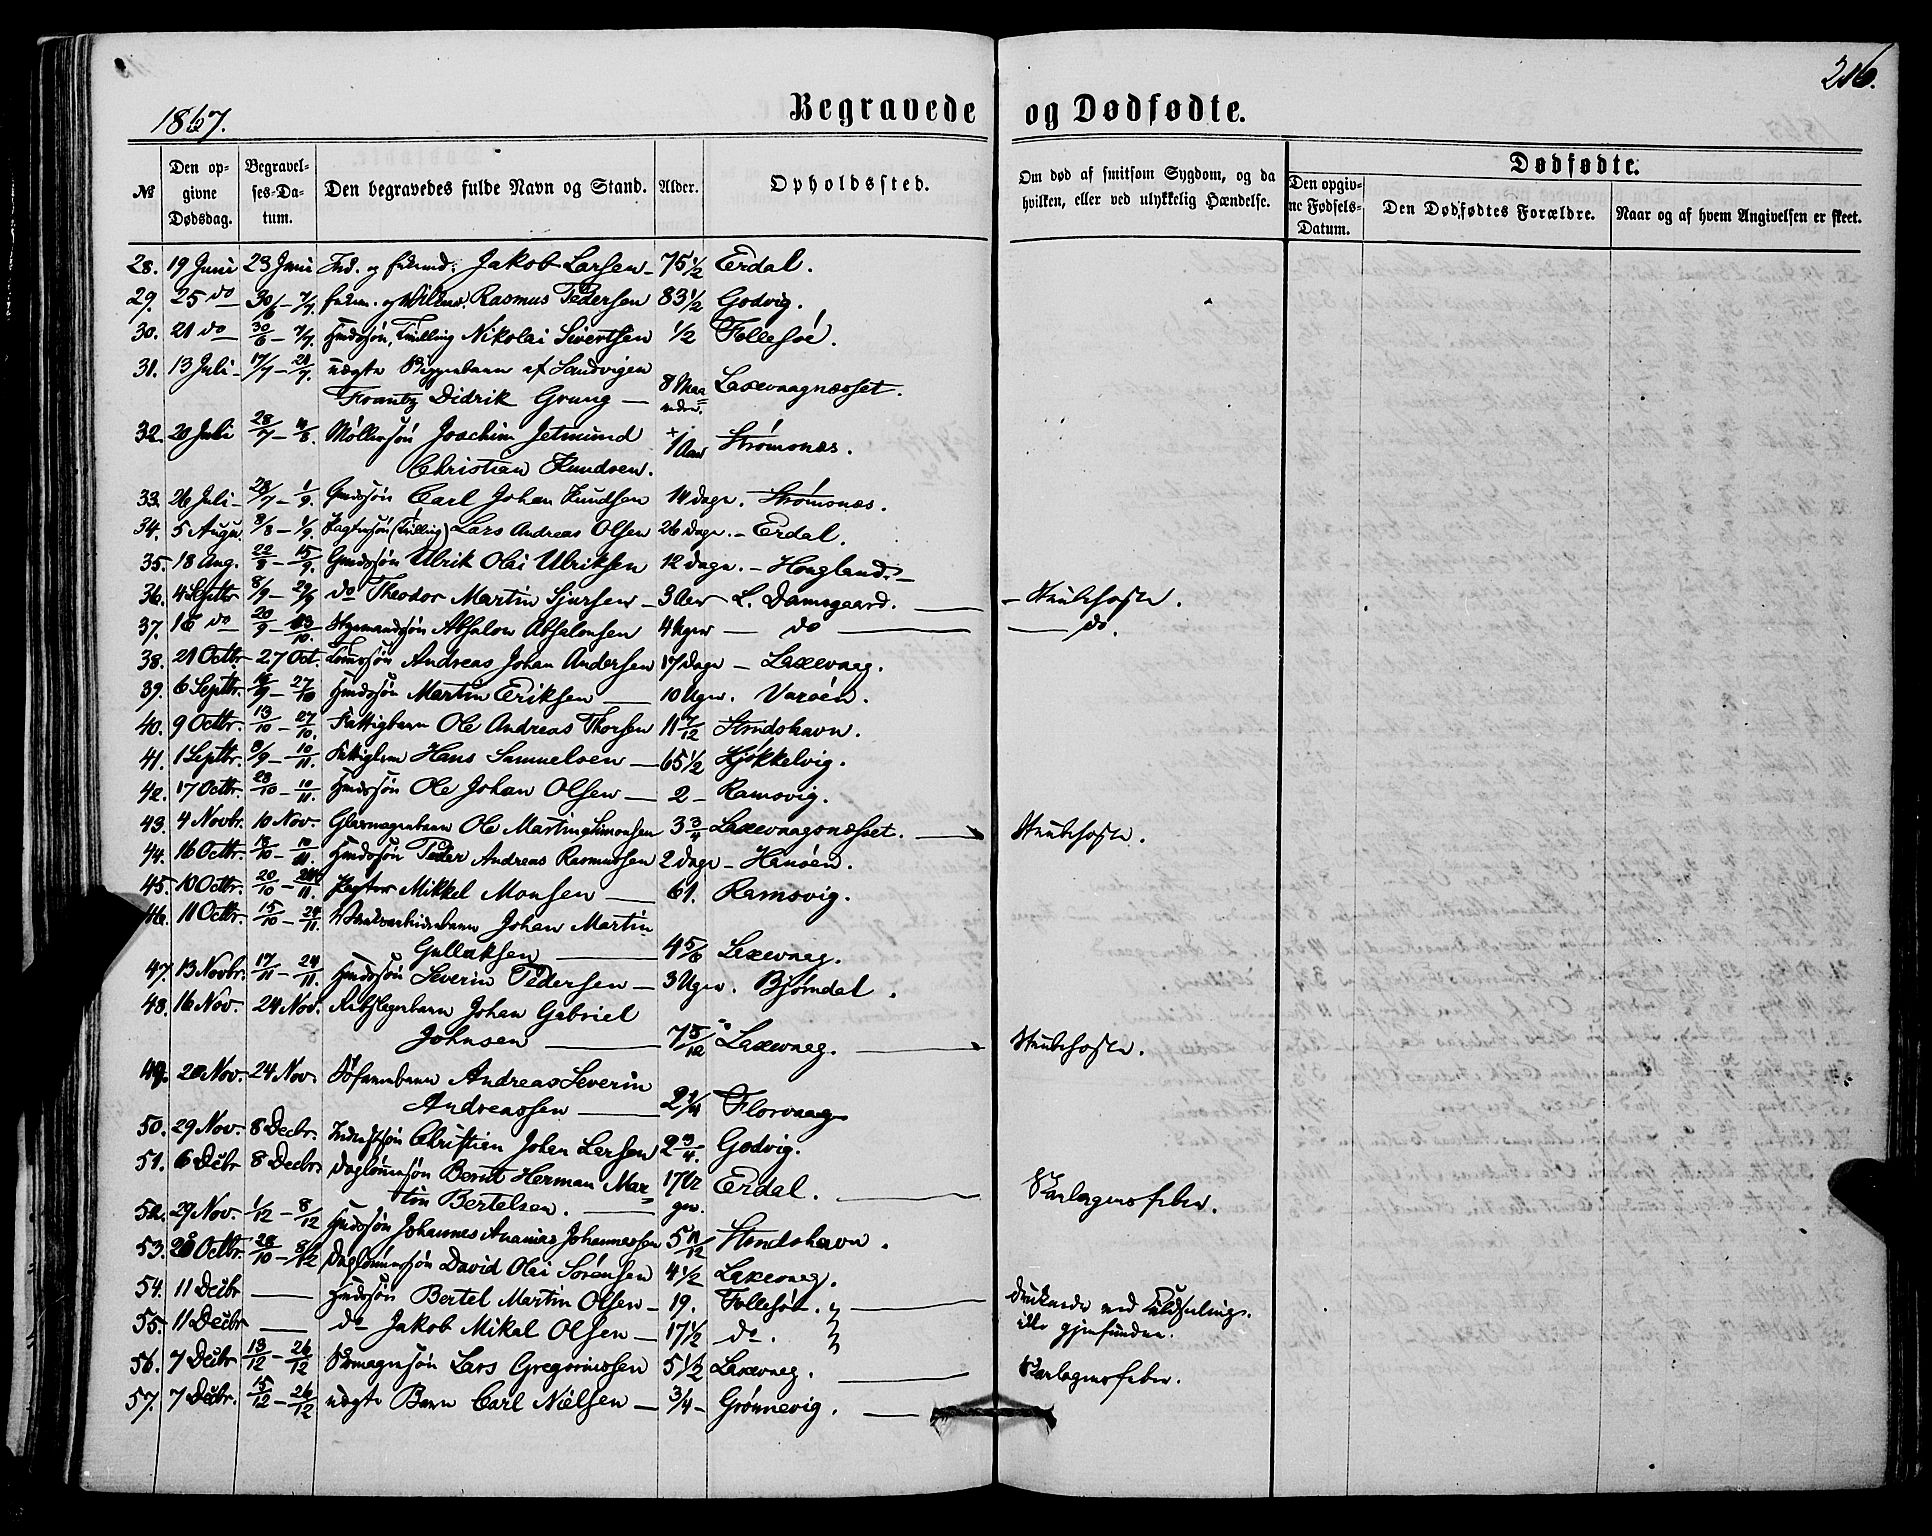 216.
1867.
Begravede og Dødfødte.
№
Den opgivne Dødsdag.
Begravelses-Datum.
Den begravedes fulde Navn og Stand.
Alder.
Opholdssted.
Om død af smitsom Sygdom, og da hvilken, eller ved ulykkelig Hændelse.
Dødfødte.
Den opgivne Fødsels-Datum.
Den Dødfødtes Forældre.
Naar og af hvem Angivelsen er skeet.
28. 19 Juni 23 Juni Jakob Larsen 75 1/2 Erdal.
29. 25 do 30/6 – 7/7. Rasmus Pedersen 83 1/2 Godvig.
30. 21 do 30/6 – 7/7. Gmdssøn, Tvilling Nikolai Sivertsen 1/2 Follesøe.
31. 13 Juli 17/7 – 21/7. uægte Piggebarn af Sandvigen
Frantz Didrik Grung 8 Maaneder. Laxevaagnæsset.
32. 20 Juli 28/7 – 4/8. Møllersøn Joachim Jetmund 1 Aar Strømsnæs.
Christian Knudsen.
33. 26 Juli 28/7 – 1/9. Gmdssøn Carl Johan Knudsen 14 Dage. Strømsnæs.
34. 5 Augu. 8/8 – 1/9. (Tvilling) Lars Andreas Olsen 26 Dage. – Erdal.
35. 18 Aug. 22/8 – 15/9. Gmdssøn Ulrik Olai Ulriksen 12 Dage. – Hougland.
36. 4 Septbr 8/9 – 29/9 do Theodor Martin Sjursen 3 Aar L. Damsgaard. – Strubehoste.
37. 16 do 20/9 – 13/10. Styrmandssøn Absalon Absalonsen 4 Uger do do.
38. 21 Octbr 27 Oct. Andreas Johan Andersen 17 Dage – Laxevaag.
39. 6 Septbr. 16/9 – 27/10 Hmdssøn Martin Eriksen 10 Uger. Varøen.
40. 9 Octbr. 13/10 – 27/10. Fattigbarn Ole Andreas Thorsen 11 7/12 Strudshavn.
41. 1 Septbr. 8/9 – 10/11. Fattiglem Hans Samuelsen 65 1/2 Kjøkkelvig.
42. 17 Octbr. 28/10 – 10/11. Hmdssøn Ole Johan Olsen 2 – Ramsvig.
43. 4 Novbr. 10 Nov. Glarmagerbarn Ole Martin Simonsen 3 3/4 Laxevaagsnæsset. Strubehoste.
44. 16 Octbr. 18/10 – 10/11. Hmdssøn Peder Andreas Rasmussen 2 Dage – Hanøen.
45. 10 Octbr. 20/10 – 24/11. Mikkel Monsen 61. Ramsvig.
46. 11 Octbr. 15/10 – 24/11. Johan Martin
Gullaksen 4 5/6 Laxevaag.
47. 13 Novbr. 17/11 – 24/11. Hmdssøn Severin Pedersen 3 Uger. Bjørndal.
48. 16 Nov. 24 Nov. Rebslagerbarn Johan Gabriel
Johnsen 7 5/12 Laxevaag. Strubehoste.
49. 20 Nov. 24 Nov. Andreas Severin
Andreassen 2 1/4 Florvaag
50. 29 Nov. 8 Decbr. Inderstsøn Christian Johan Larsen 2 3/4. Godvig.
51. 6 Decbr 8 Decbr. Daglønnersøn Berndt Herman Mar=
tin Bertelsen. 17 Uger. Erdal. Skarlagensfeber.
52. 29 Nov. 1/12 – 8/12 Hmdssøn Johannes Ananias Johannessen 5 11/12 Strudshavn.
53. 26 Octbr. 28/10 – 8/12 Daglønnerssøn David Olai Sørensen 4 1/2 Laxevaag.
54. 11 Decbr Hmdssøn Bertel Martin Olsen 19. Follesøe. druknede ved Kuldseiling.
55. 11 Decbr do Jakob Mikal Olsen 17 1/2 do. ikke gjenfundne.
56. 7 Decbr 13/12 – 26/12 Lars Gregoriussen 5 1/2 Laxevaag. Skarlagensfeber.
57. 7 Decbr. 15/12 – 26/12 uægte Barn Carl Nielsen 3/4 – Grønnevig.